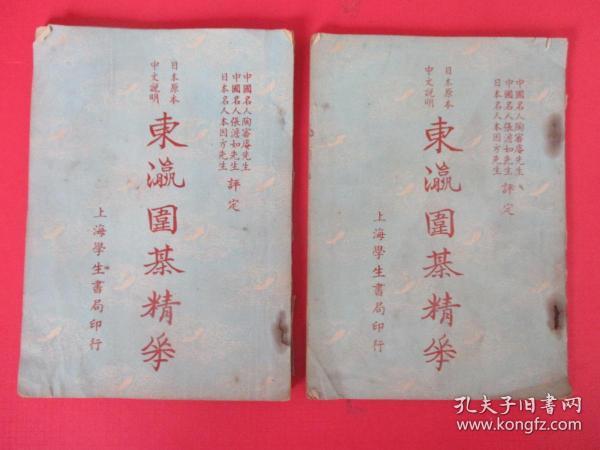 中國名人陶審庵先生
中國名人張澹如先生
日本名人本因方先生
評定
日本原本
中文説明
東瀛圍棊精華
上海學生書局印行
中國名人陶審庵先生
中國名人張澹如先生
日本名人本因方先生
評定
日本原本
中文説明
東瀛圍棊精華
上海學生書局印行
孔夫子旧书网
www.kongfz.com